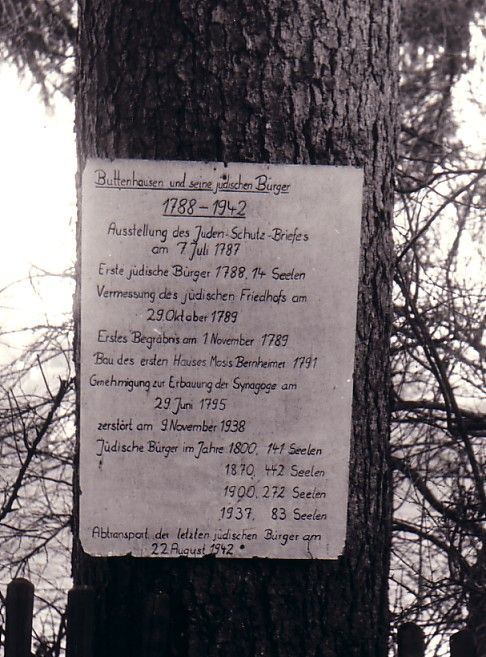 Buttenhausen und seine jüdischen Bürger
1788 - 1942
Ausstellung des Juden-Schutz-Briefes
am 7. Juli 1787
Erste jüdische Bürger 1788, 14 Seelen
Vermessung des jüdischen Friedhofs am
29. Oktober 1789
Erstes Begräbnis am 1 November 1789
Bau des ersten Hauses Mosis Bernheimer 1791
Genehmigung zur Erbauung der Synagoge am
29. Juni 1795
zerstört am 9. November 1938
Jüdische Bürger im Jahre 1800, 141 Seelen
1870, 442 Seelen
1900, 272 Seelen
1937, 83 Seelen
Abtransport der letzten jüdischen Bürger am
22. August 1942